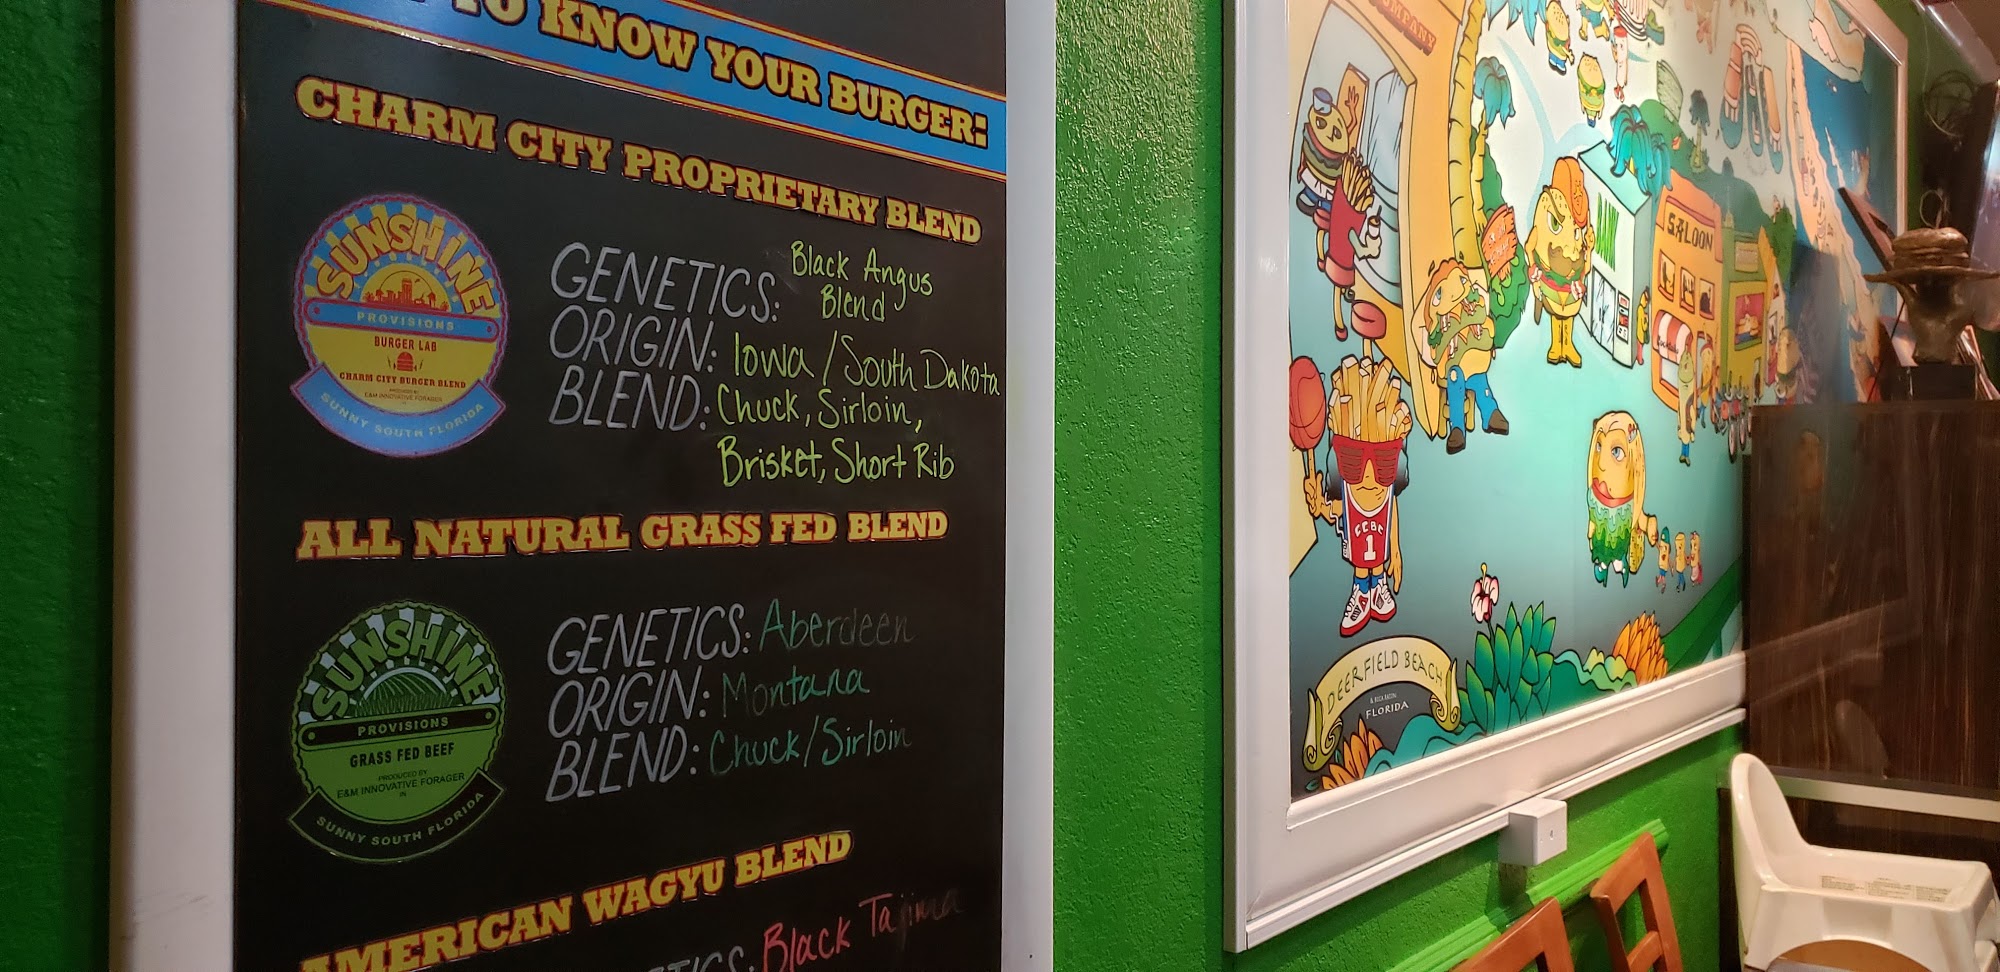 TO KNOW YOUR BURGER:
CHARM CITY PROPRIETARY BLEND
SUNSHINE
PROVISIONS
BURGER LAB
CHARM CITY BURGER BLEND
PRODUCED BY
E&M INNOVATIVE FORAGER
IN
SUNNY SOUTH FLORIDA
GENETICS: Black Angus
Blend
ORIGIN: Iowa/South Dakota
BLEND: Chuck, Sirloin,
Brisket, Short Rib
ALL NATURAL GRASS FED BLEND
SUNSHINE
PROVISIONS
GRASS FED BEEF
PRODUCED BY
E&M INNOVATIVE FORAGER
IN
SUNNY SOUTH FLORIDA
GENETICS: Aberdeen
ORIGIN: Montana
BLEND: Chuck/Sirloin
AMERICAN WAGYU BLEND
GENETICS: Black Tajima
COMPANY
SALOON
CCBC
1
DEERFIELD BEACH
& BOCA RATON
FLORIDA